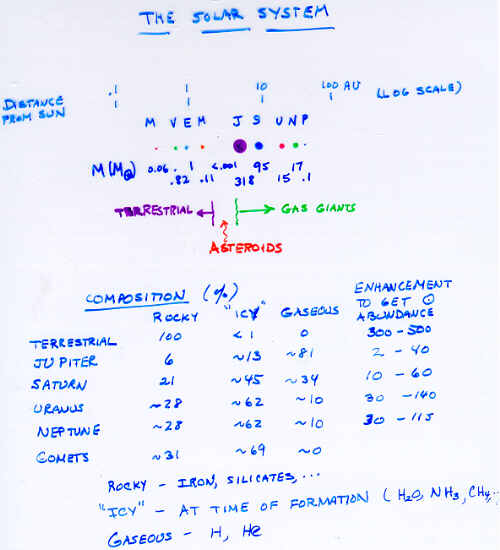 THE SOLAR SYSTEM
.1 1 10 100 AU (LOG SCALE)
DISTANCE FROM SUN
M V E M J S U N P
M(M⊕) 0.06 1 <.001 95 17
.82 .11 318 15 .1
TERRESTRIAL GAS GIANTS
ASTEROIDS
COMPOSITION (%)
ROCKY "ICY" GASEOUS ENHANCEMENT TO GET ⊙ ABUNDANCE
TERRESTRIAL 100 <1 0 300 - 500
JUPITER 6 ~13 ~81 2 - 40
SATURN 21 ~45 ~34 10 - 60
URANUS ~28 ~62 ~10 30 - 140
NEPTUNE ~28 ~62 ~10 30 - 115
COMETS ~31 ~69 ~0
ROCKY - IRON, SILICATES, ...
"ICY" - AT TIME OF FORMATION (H2O, NH3, CH4, ..
GASEOUS - H, He